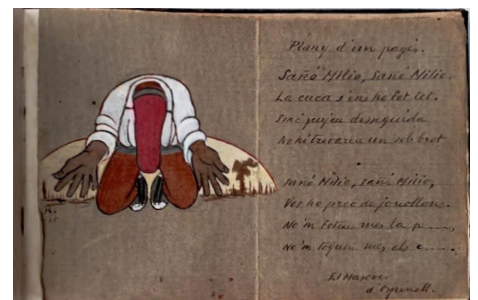 Plany d'un pagés.
Sañó Milio, Sañó Milio.
La cuca s'ens ho fot tot.
Sinó pujen desseguida
No hi trovaran un sol brot
Sañó Milio, Sañó Milio,
Vos ho prec de jonollons.
No'm foten mes la p....,
No'm toquin mes els c.....
El Masover
d'Espinell.